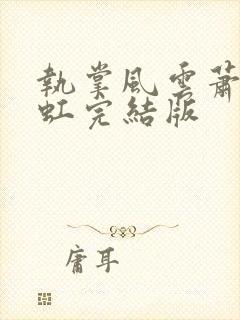 執掌風雲蕭
虹完結版
庸耳